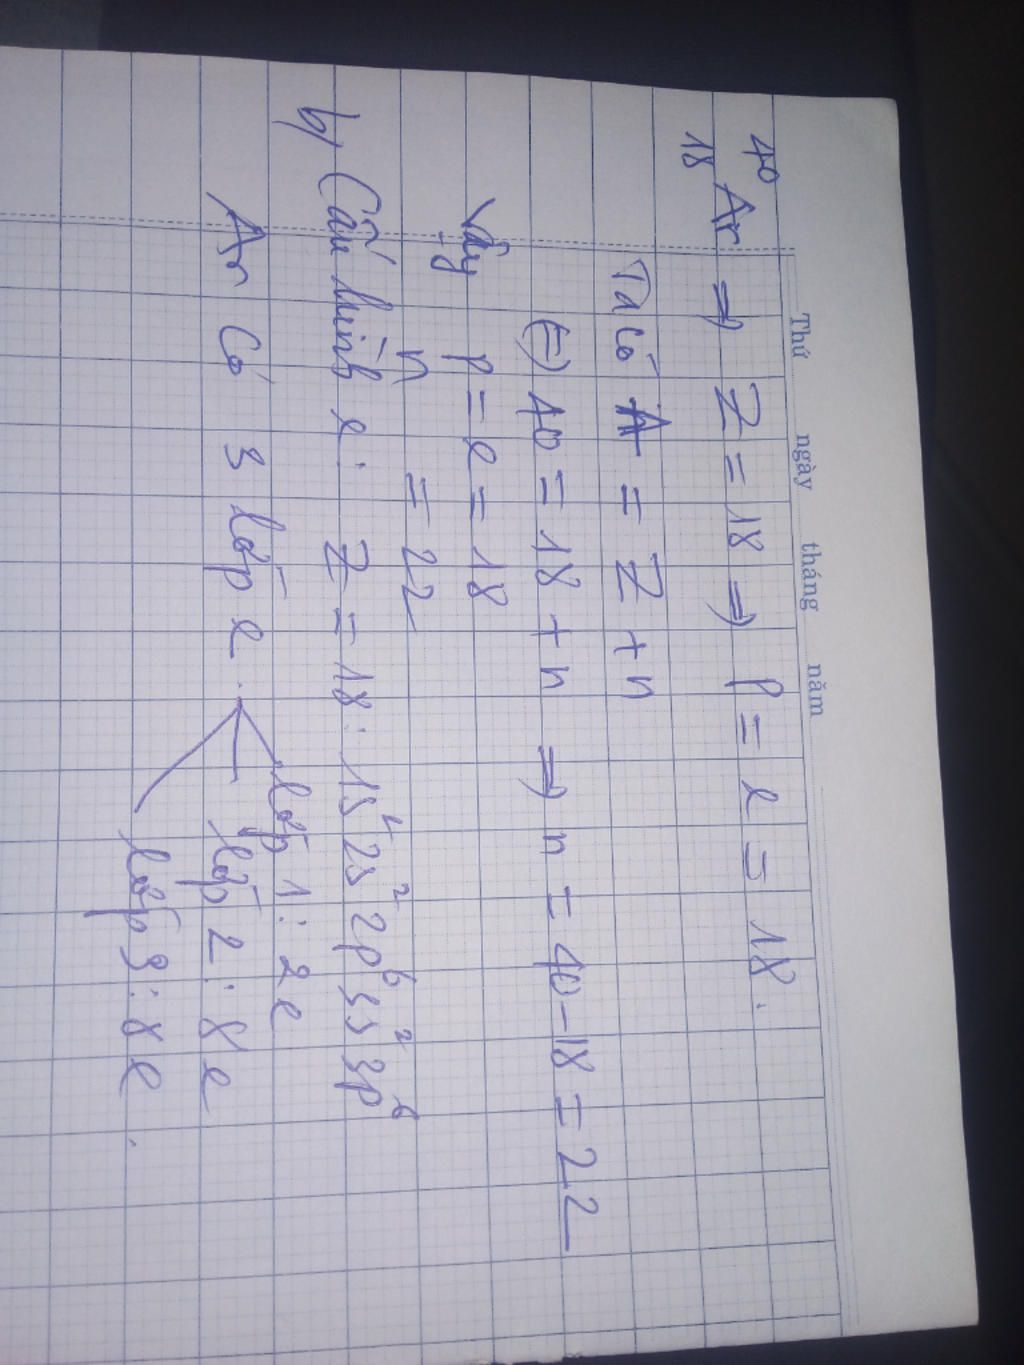 Thứ ngày tháng năm
⁴⁰₁₈Ar ⇒ Z = 18 ⇒ p = e = 18.
Ta có A = Z + n
(=) 40 = 18 + n ⇒ n = 40 - 18 = 22
Vậy p = e = 18
n = 22
b, Cấu hình e: Z = 18: 1s² 2s² 2p⁶ 3s² 3p⁶
Ar có 3 lớp e:
lớp 1: 2e
lớp 2: 8e
lớp 3: 8e.